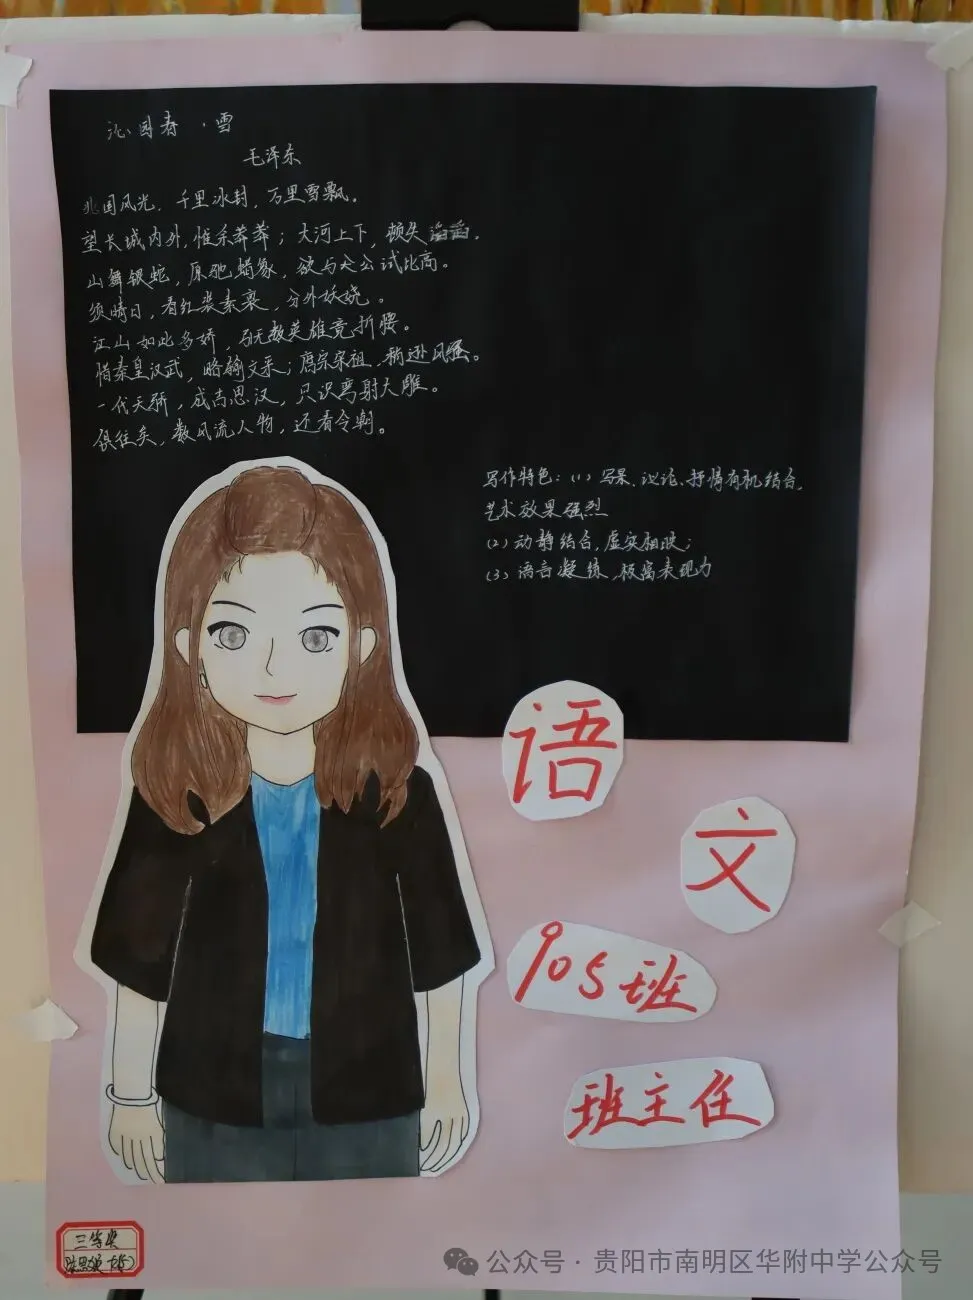 沁园春·雪
毛泽东
北国风光，千里冰封，万里雪飘。
望长城内外，惟余莽莽；大河上下，顿失滔滔。
山舞银蛇，原驰蜡象，欲与天公试比高。
须晴日，看红装素裹，分外妖娆。
江山如此多娇，引无数英雄竞折腰。
惜秦皇汉武，略输文采；唐宗宋祖，稍逊风骚。
一代天骄，成吉思汗，只识弯射大雕。
俱往矣，数风流人物，还看今朝。
写作特色：(1) 写景、议论、抒情有机结合，
艺术效果强烈
(2) 动静结合，虚实相映；
(3) 语言凝练，极富表现力
语
文
905班
班主任
三等奖
公众号·贵阳市南明区华附中学公众号